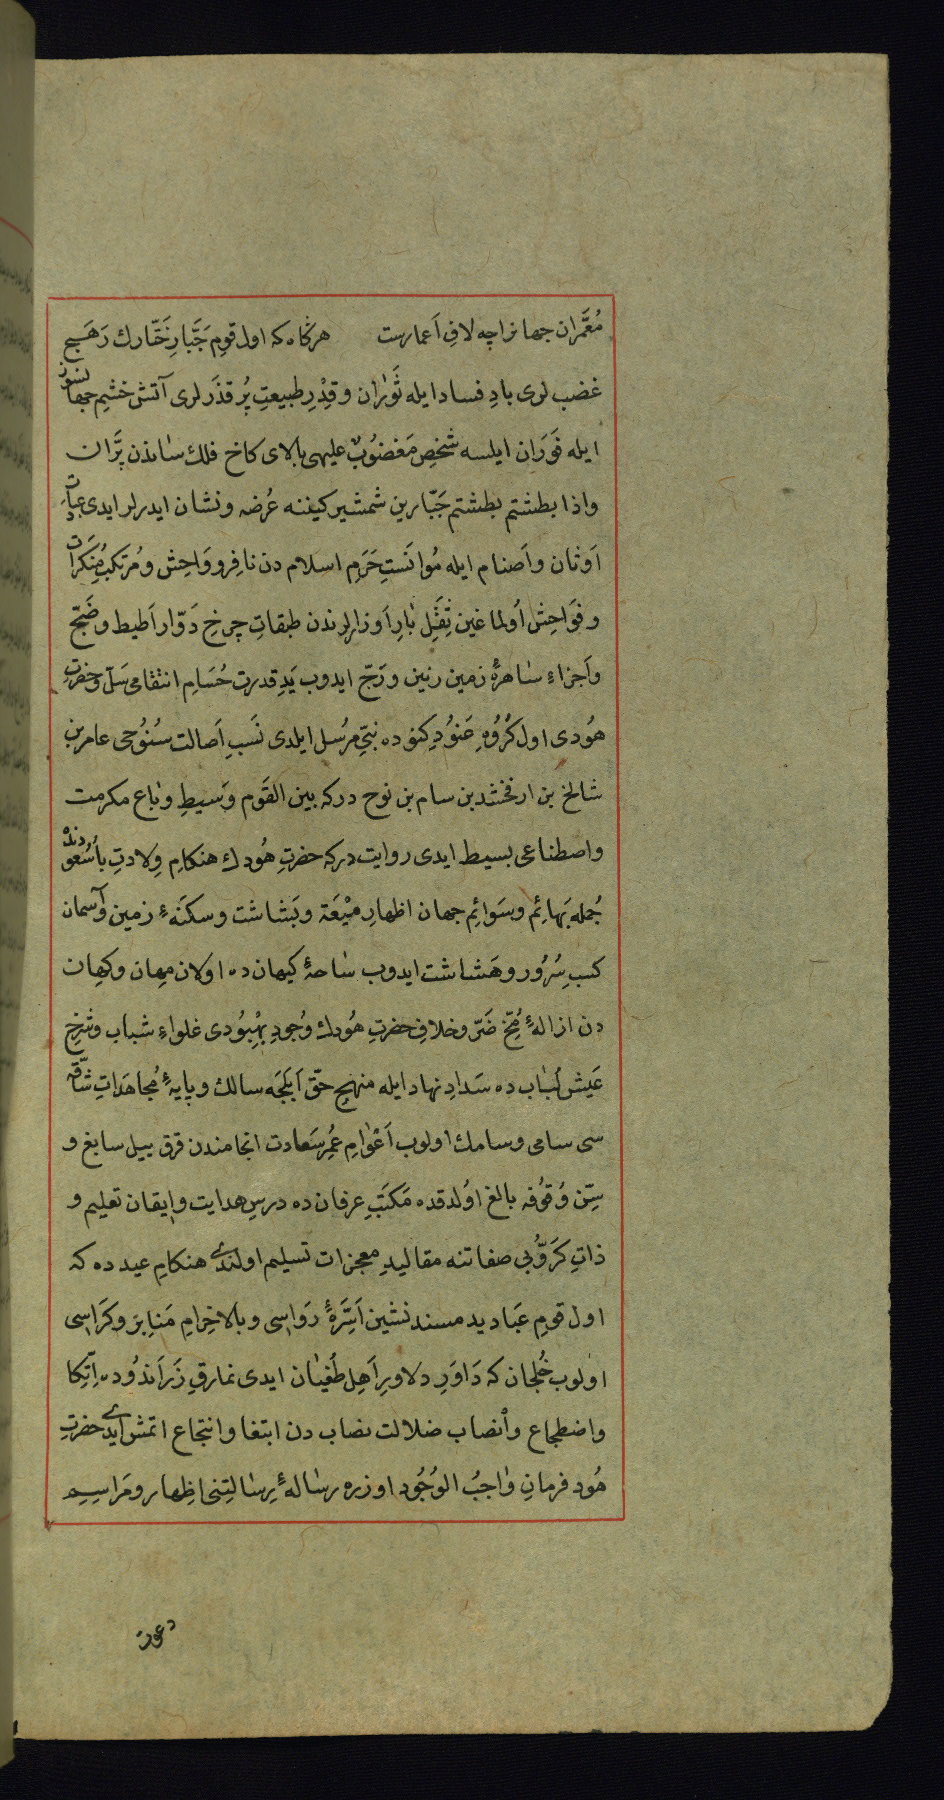 مُعَمَّران جهانراچه لافِ اَعمارست هرگاه كه اول قومِ جَبَّارِ خَتّارك رَهَجِ
غضب لرى بادِ فساد ايله ثَوَران و قِدْرِ طبيعتِ پُر قذَر لرى آتش خشمِ جهانسوز
ايله فَوَران ايلسه شخصِ مَغضُوبٌ عليهى بالاى كاخ فلك سادن پَرَّان
واذا بطشتم بطشتم جَبّارين شمشير كيننه عُرضه ونشان ايدرلر ايدى عبادتِ
اَوثان واَصنام ايله مُوانَستِ حَرَمِ اسلام دن نافِر و وَاحِش ومُرتكبِ مُنكَراتِ
وفَوَاحِش اُولماغين ثِقَلِ بَارِ اَوزارلرندن طبقاتِ چرخِ دَوّار اَطيط وضَجّ
واَجزاءِ ساهرهٔ زمين رنين ورَجّ ايدوب يَدِ قدرت حُسَامِ انتقامى سَلّ وحضرتِ
هُودى اول كُرُوُهِ عَنُودِ كنوده نبىِّ مرُسل ايلدى نَسَبِ اَصالت سُنُوحى عامر بن
شالخ بن ارفخشد بن سام بن نوح دركه بين القَوم وَسيطِ وبَاع مكرمت
واصطناعى بسيط ايدى روايت دركه حضرتِ هُودك هنكامِ وِلادتِ باسُعُودنده
جُمله بَهائِم وسَوائِم جهان اظهارِ مَيْعَة وبَشاشت وسكنَهٔ زمين وآسمان
كسبِ سُرُور وهَشاشت ايدوب سَاحهٔ كيهان ده اولان مِهان وكِهان
دن ازالهٔ مُخّ ضَرّ وخلافِ حضرتِ هُودك وُجودِ بِهْبُودى غلواءِ شباب وشرْخِ
عَيش لُبَاب ده سَدادِ نهاد ايله منهجِ حَقّ اَبلَجَه سالك وپايهٔ مُجاهَداتِ شاقّه
سى سامى وسامك اولوب اَعْوَامِ عُمرِ سَعادت انجامندن قرق ييل سابغ و
سِنّ وُقوُفه بالغ اوُلدقده مَكتَبِ عرفان ده درسِ هدايت وايقان تعليم و
ذاتِ كَرَوُّبى صفاتنه مقاليدِ معجزات تسليم اولندى هنكامِ عيد ده كه
اول قومِ عَبَاديد مسند نشين اَسِرَّهٔ رَوَاسى وبالاخِرامِ مَنابِر وكَرَاسى
اولوب خُلْجان كه دَاوَرِ دلاورِ اَهلِ طُغيَان ايدى نمارقِ زَرَانْدُودَه اِتّكا
واضطجاع واْنصاب ضلالت نصاب دن ابتغا وانتجاع اتمش ايدى حضرتِ
هُود فرمانِ وَاجبُ الوُجُود اوزره رسَالهٔ رِسَالتِنى اظِهار ومَراسِمِ
دعوت